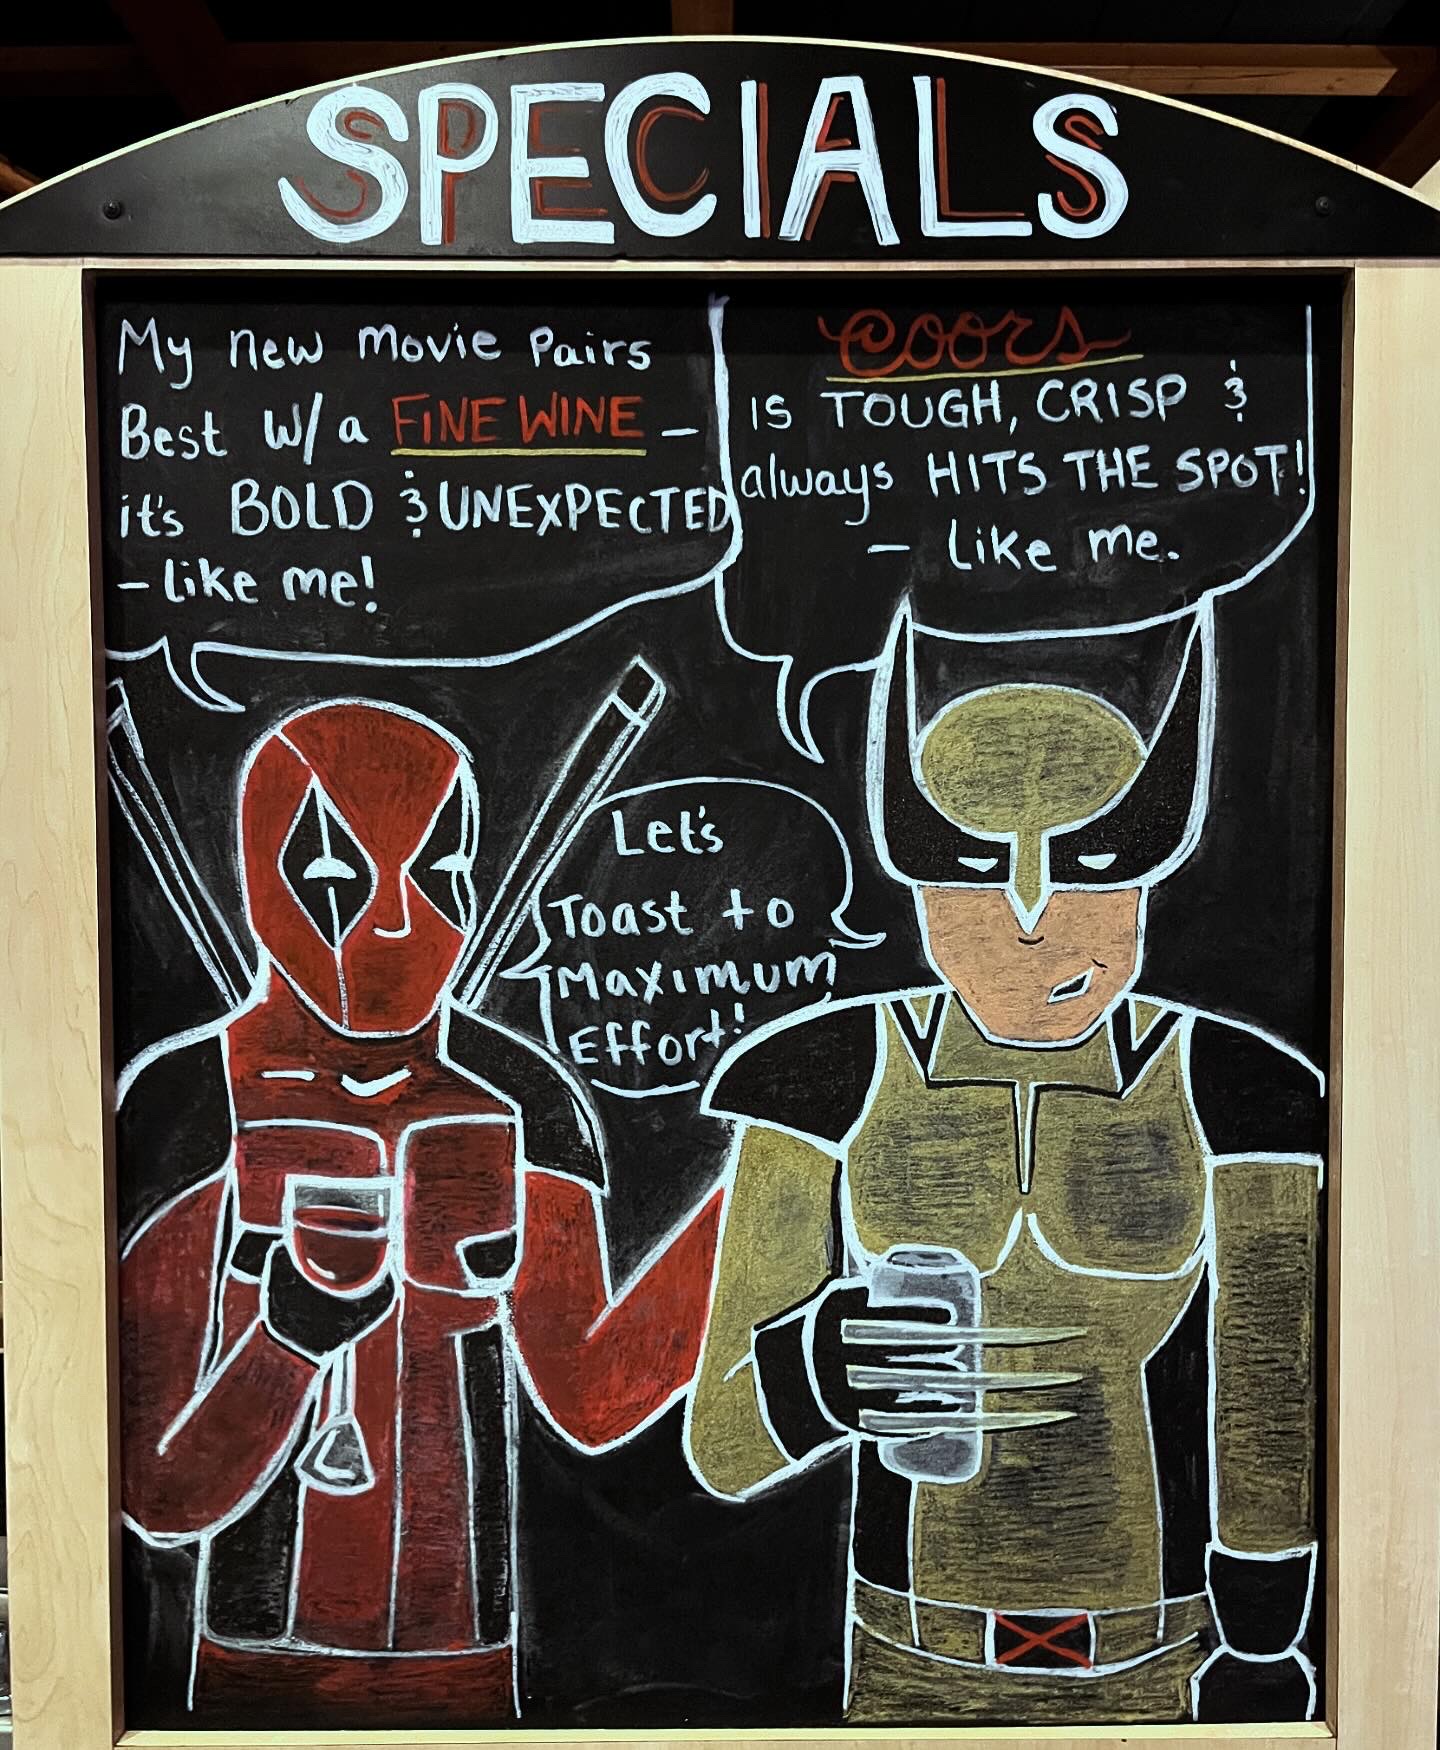 SPECIALS
My new movie Pairs
Best w/a FINE WINE –
it's BOLD & UNEXPECTED
– like me!
Coors
IS TOUGH, CRISP &
always HITS THE SPOT!
– like me.
Let's
Toast to
Maximum
Effort!